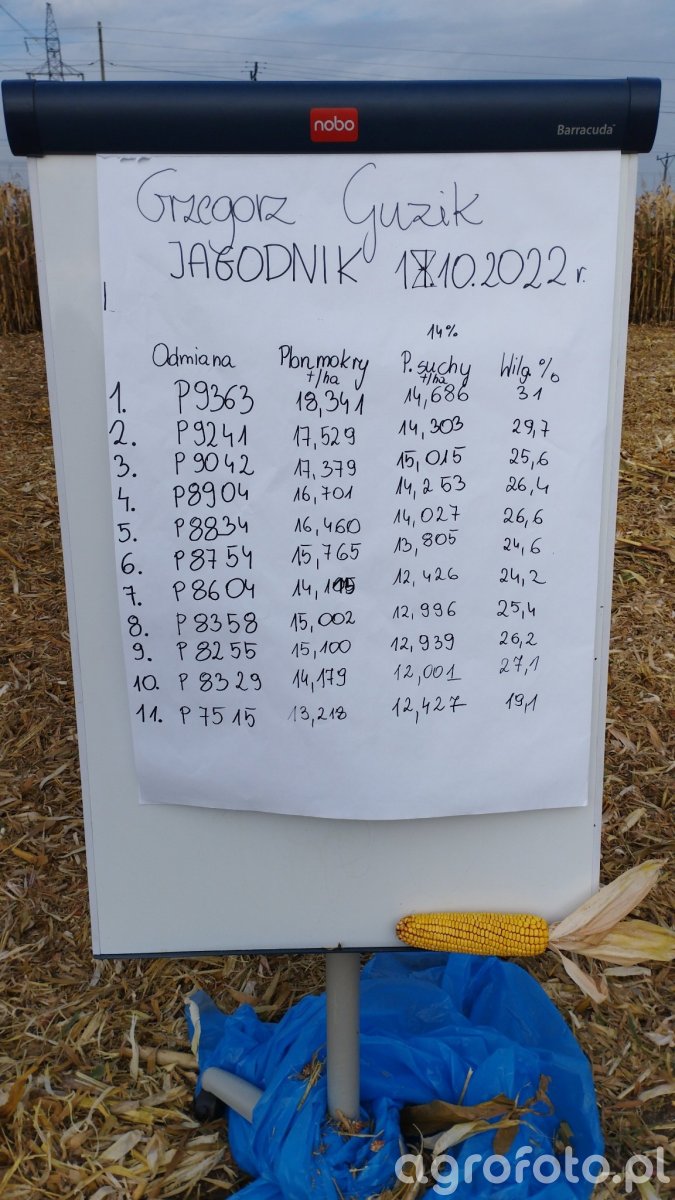 nobo
Barracuda
Grzegorz Guzik
JAGODNIK 10.2022 r.
14%
Odmiana Plon mokry t/ha P. suchy t/ha Wilg %
1. P9363 18,341 14,686 31
2. P9241 17,529 14,303 29,7
3. P9042 17,379 15,015 25,6
4. P8904 16,701 14,253 26,4
5. P8834 16,460 14,027 26,6
6. P8754 15,765 13,805 24,6
7. P8604 12,426 24,2
8. P8358 15,002 12,996 25,4
9. P8255 15,100 12,939 26,2
10. P8329 14,179 12,001 27,1
11. P7515 13,218 12,427 19,1
agrofoto.pl